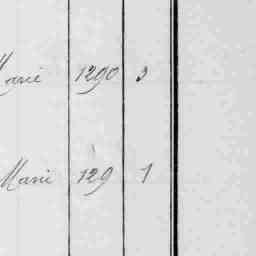 Marie 1290 3
Marie 129 1